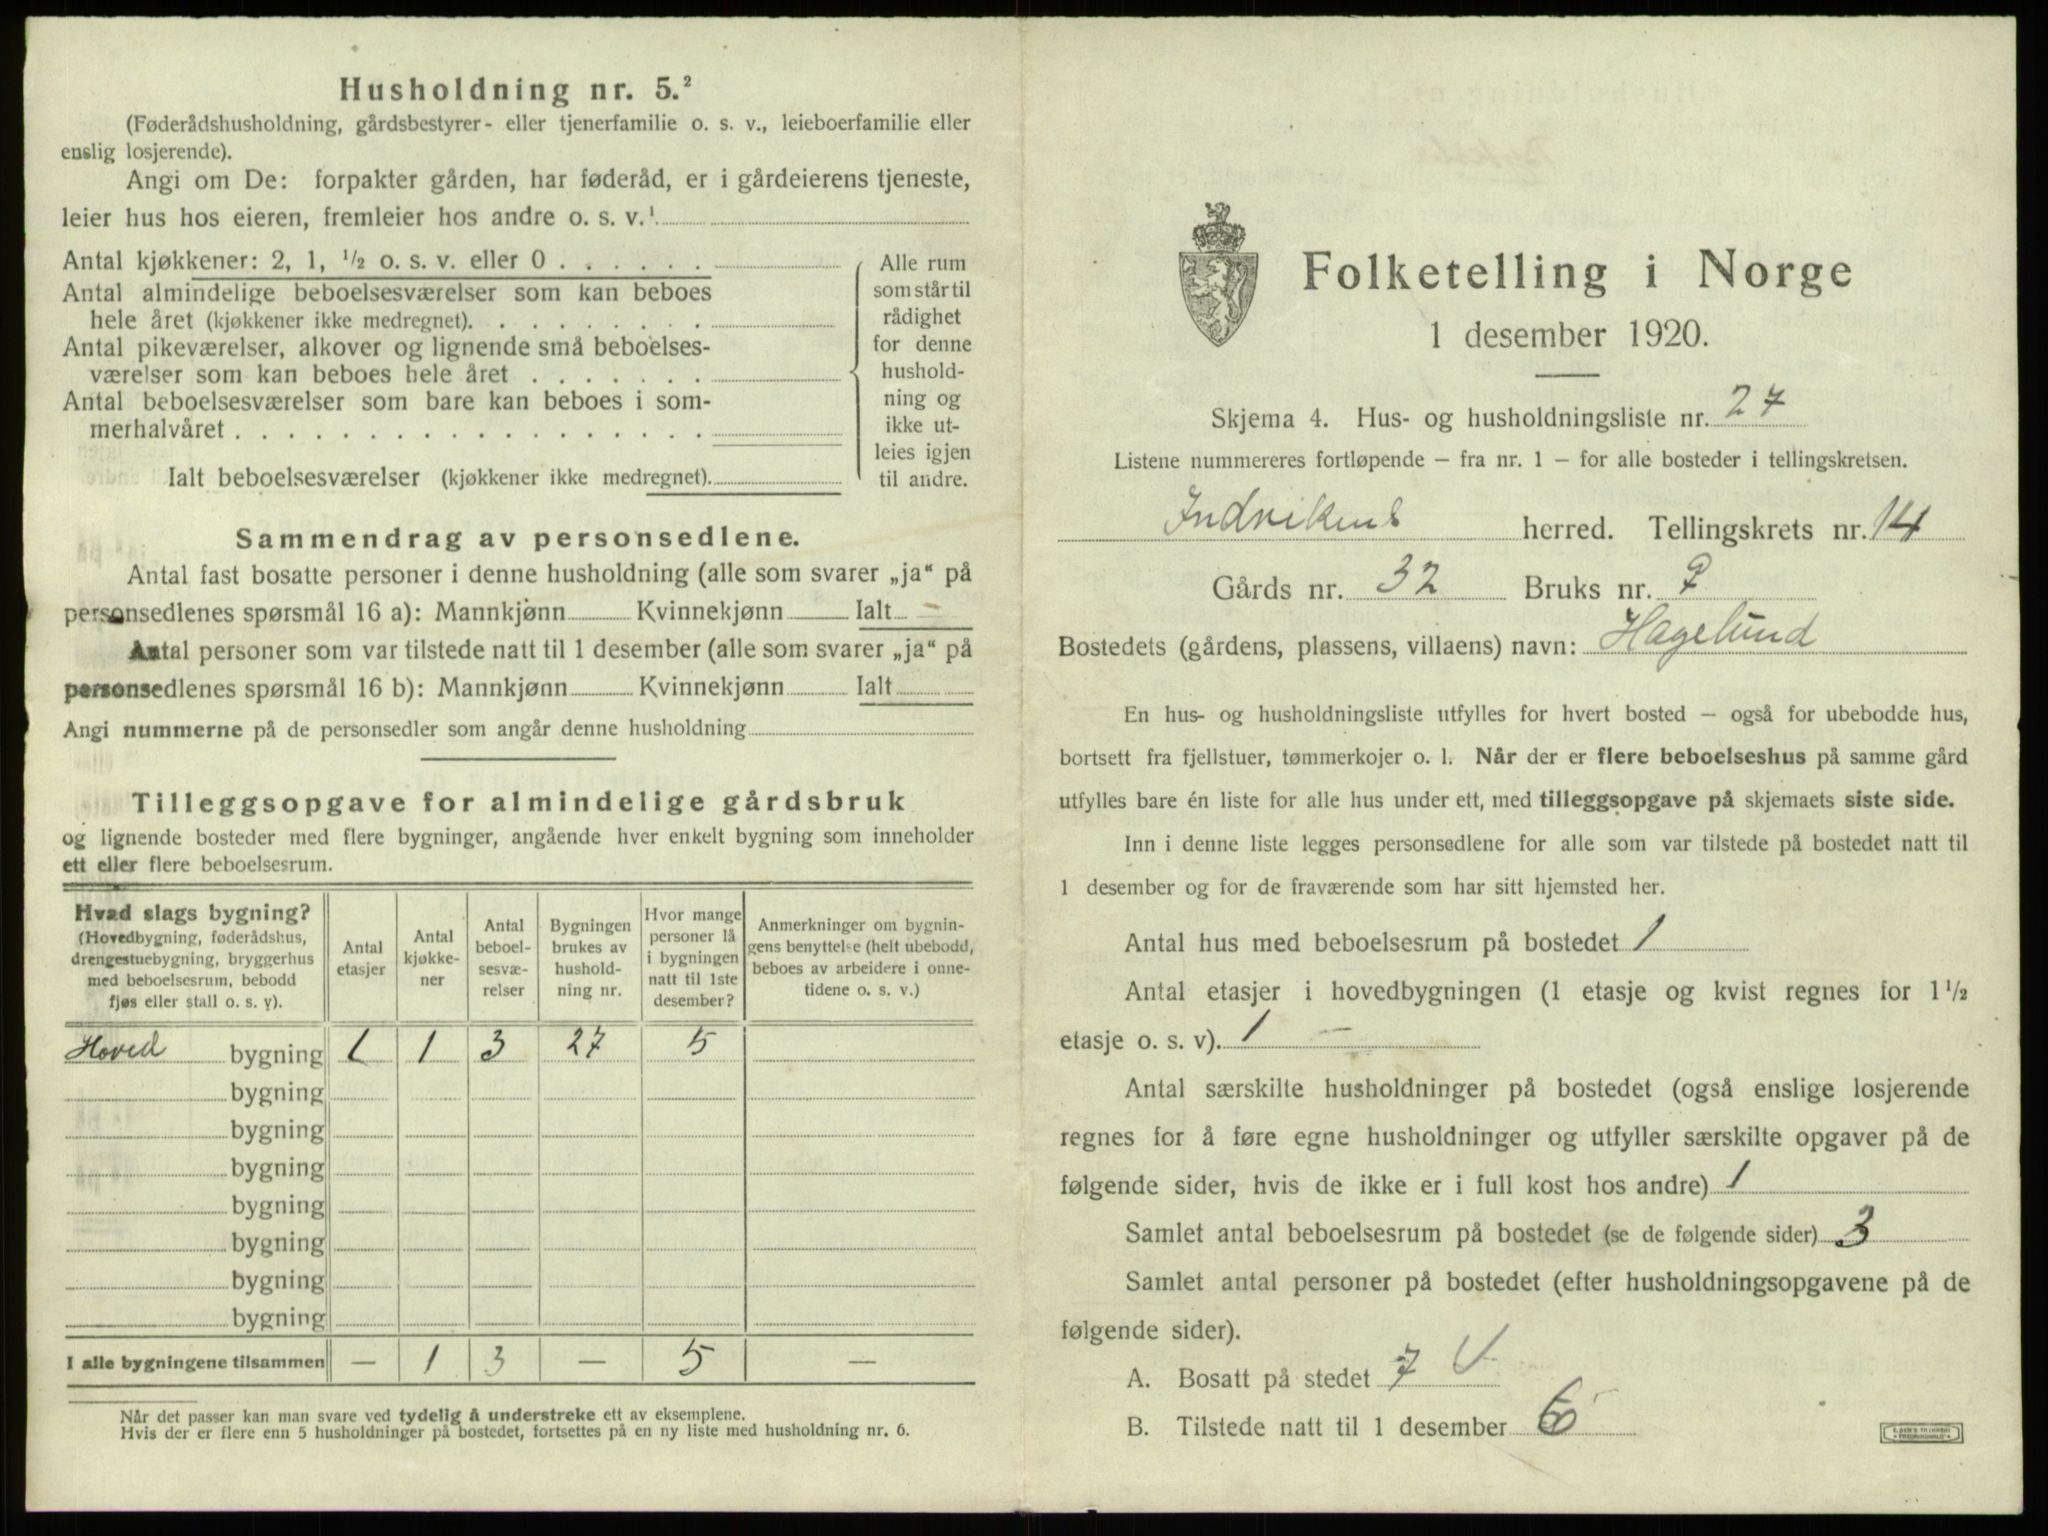 Husholdning nr. 5.²
(Føderådshusholdning, gårdsbestyrer- eller tjenerfamilie o. s. v., leieboerfamilie eller
enslig losjerende).
Angi om De: forpakter gården, har føderåd, er i gårdeierens tjeneste,
leier hus hos eieren, fremleier hos andre o. s. v.¹
Antal kjøkkener: 2, 1, ½ o. s. v. eller 0 . . . . . .
Antal almindelige beboelsesværelser som kan beboes
hele året (kjøkkener ikke medregnet). . . . . . . . .
Antal pikeværelser, alkover og lignende små beboelses-
værelser som kan beboes hele året . . . . . . .
Antal beboelsesværelser som bare kan beboes i som-
merhalvåret . . . . . . . . . . . . . . . . . .
Ialt beboelsesværelser (kjøkkener ikke medregnet).
Alle rum
som står til
rådighet
for denne
hushold-
ning og
ikke ut-
leies igjen
til andre.
Sammendrag av personsedlene.
Antal fast bosatte personer i denne husholdning (alle som svarer „ja“ på
personsedlenes spørsmål 16 a): Mannkjønn Kvinnekjønn Ialt –
Antal personer som var tilstede natt til 1 desember (alle som svarer „ja“ på
personsedlenes spørsmål 16 b): Mannkjønn Kvinnekjønn Ialt
Angi nummerne på de personsedler som angår denne husholdning
Tilleggsopgave for almindelige gårdsbruk
og lignende bosteder med flere bygninger, angående hver enkelt bygning som inneholder
ett eller flere beboelsesrum.
Hvad slags bygning?
(Hovedbygning, føderådshus,
drengestuebygning, bryggerhus
med beboelsesrum, bebodd
fjøs eller stall o. s. v).
Antal
etasjer
Antal
kjøkke-
ner
Antal
beboel-
sesvæ-
relser
Bygningen
brukes av
hushold-
ning nr.
Hvor mange
personer lå
i bygningen
natt til 1ste
desember?
Anmerkninger om bygnin-
gens benyttelse (helt ubebodd,
beboes av arbeidere i onne-
tidene o. s. v.)
Hoved bygning 1 1 3 27 5
bygning
bygning
bygning
bygning
bygning
bygning
bygning
I alle bygningene tilsammen — 1 3 — 5 —
Når det passer kan man svare ved tydelig å understreke ett av eksemplene.
Hvis der er flere enn 5 husholdninger på bostedet, fortsettes på en ny liste med husholdning nr. 6.
Folketelling i Norge
1 desember 1920.
Skjema 4. Hus- og husholdningsliste nr. 27
Listene nummereres fortløpende – fra nr. 1 – for alle bosteder i tellingskretsen.
Indvikens herred. Tellingskrets nr. 14
Gårds nr. 32 Bruks nr. 9
Bostedets (gårdens, plassens, villaens) navn: Hagelund
En hus- og husholdningsliste utfylles for hvert bosted – også for ubebodde hus,
bortsett fra fjellstuer, tømmerkojer o. l. Når der er flere beboelseshus på samme gård
utfylles bare én liste for alle hus under ett, med tilleggsopgave på skjemaets siste side.
Inn i denne liste legges personsedlene for alle som var tilstede på bostedet natt til
1 desember og for de fraværende som har sitt hjemsted her.
Antal hus med beboelsesrum på bostedet 1
Antal etasjer i hovedbygningen (1 etasje og kvist regnes for 1½
etasje o. s. v). 1 –
Antal særskilte husholdninger på bostedet (også enslige losjerende
regnes for å føre egne husholdninger og utfyller særskilte opgaver på de
følgende sider, hvis de ikke er i full kost hos andre) 1
Samlet antal beboelsesrum på bostedet (se de følgende sider) 3
Samlet antal personer på bostedet (efter husholdningsopgavene på de
følgende sider).
A. Bosatt på stedet 7
B. Tilstede natt til 1 desember